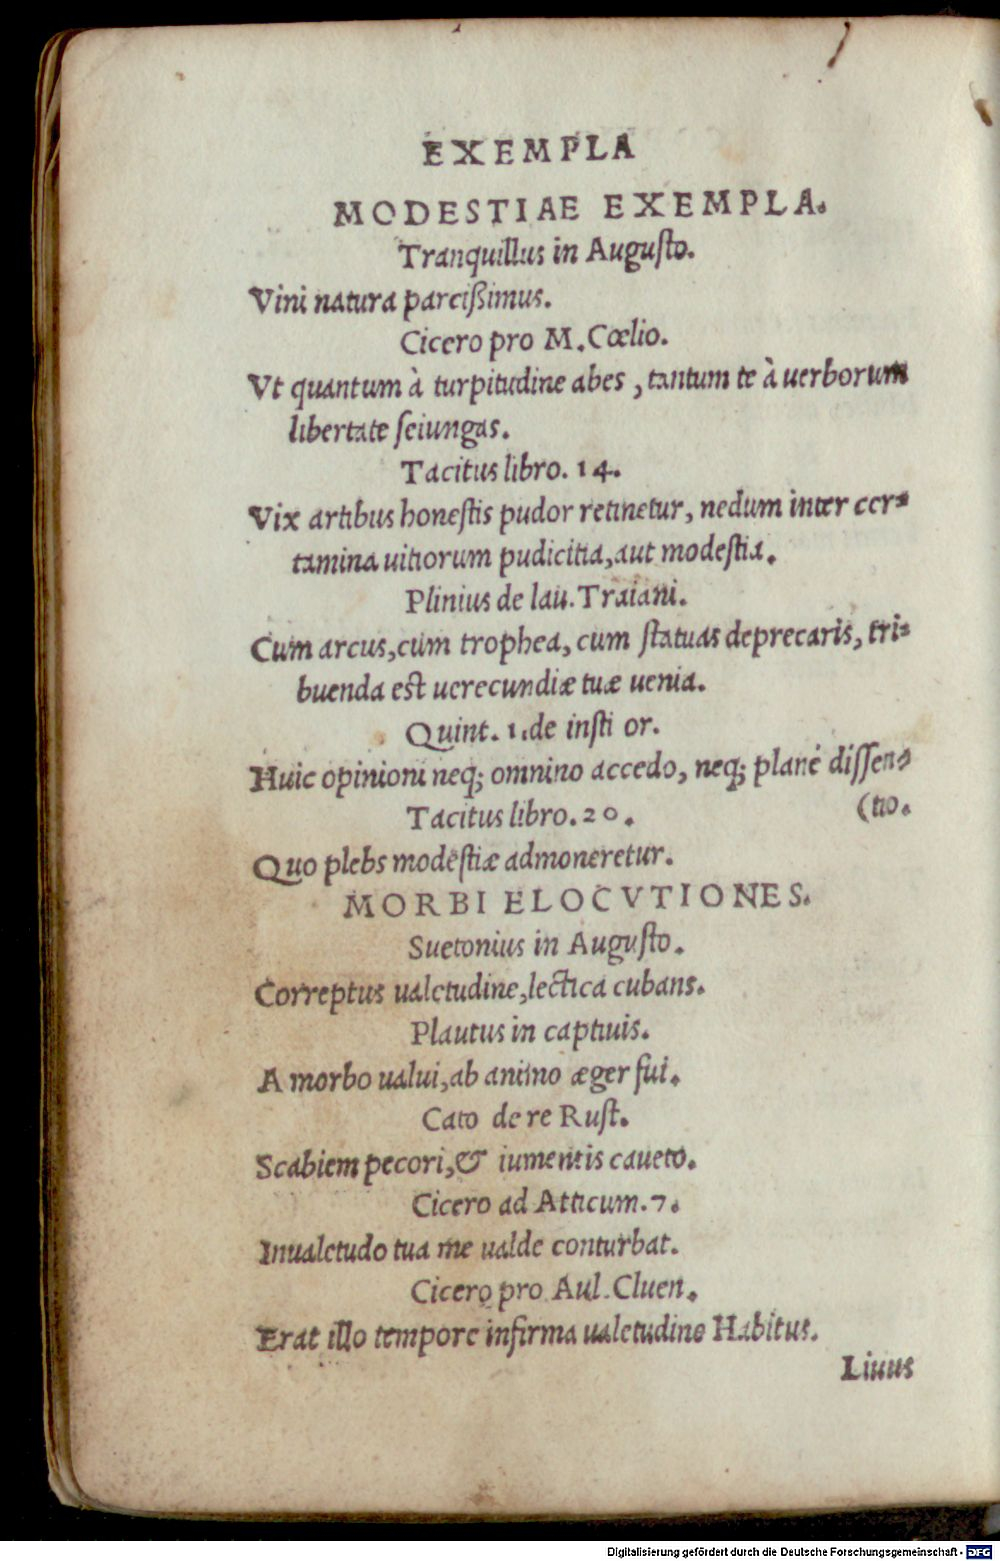 EXEMPLA
MODESTIAE EXEMPLA.
Tranquillus in Augusto.
Vini natura parcißimus.
Cicero pro M. Cœlio.
Vt quantum à turpitudine abes, tantum te à uerborum
libertate ſeiungas.
Tacitus libro. 14.
Vix artibus honeſtis pudor retinetur, nedum inter cer-
tamina uitiorum pudicitia, aut modeſtia.
Plinius de lau. Traiani.
Cum arcus, cum trophea, cum ſtatuas deprecaris, tri-
buenda eſt uerecundiæ tuæ uenia.
Quint. 1. de inſti or.
Huic opinioni neq; omnino accedo, neq; planè diſſen-
(tio.
Tacitus libro. 20.
Quo plebs modeſtiæ admoneretur.
MORBI ELOCVTIONES.
Suetonius in Auguſto.
Correptus ualetudine, lectica cubans.
Plautus in captiuis.
A morbo ualui, ab animo æger fui.
Cato de re Ruſt.
Scabiem pecori, & iumentis caueto.
Cicero ad Atticum. 7.
Inualetudo tua me ualde conturbat.
Cicero pro Aul. Cluen.
Erat illo tempore infirma ualetudine Habitus.
Liuius
Digitalisierung gefördert durch die Deutsche Forschungsgemeinschaft - DFG